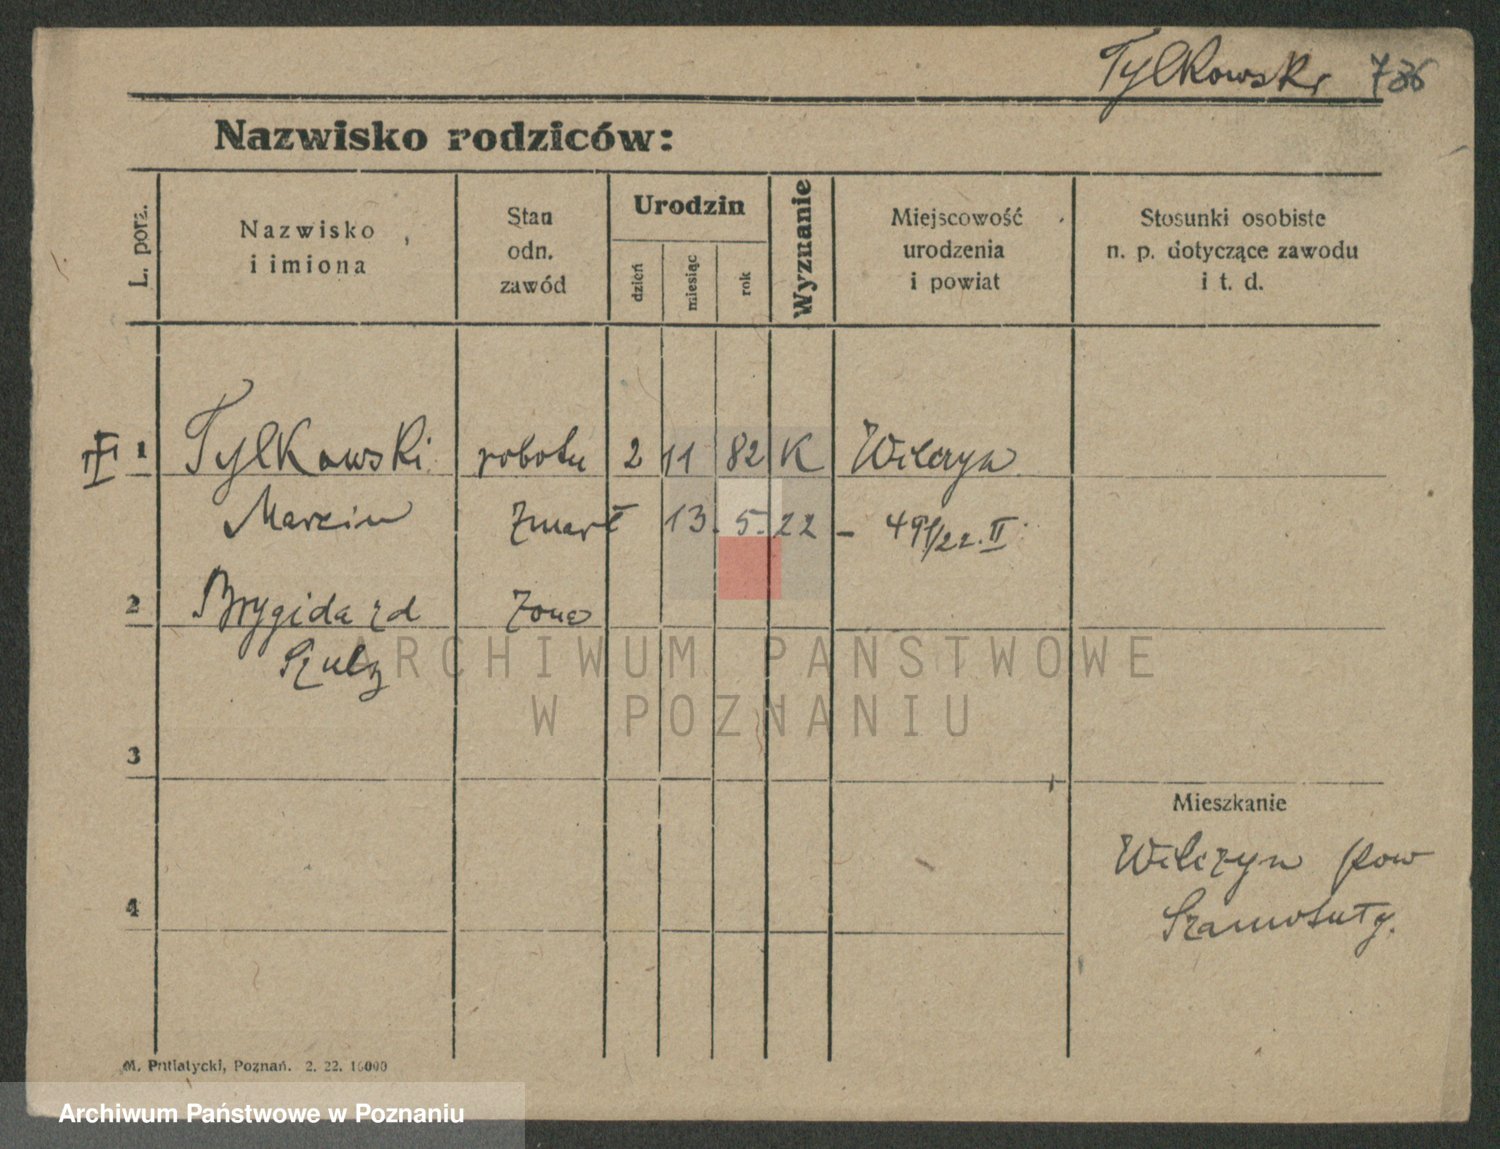 Tylkowski 736
Nazwisko rodziców:
L. porz.
Nazwisko
i imiona
Stan
odn.
zawód
Urodzin
dzień
miesiąc
rok
Wyznanie
Miejscowość
urodzenia
i powiat
Stosunki osobiste
n. p. dotyczące zawodu
i t. d.
1 Tylkowski robotn 2 11 82 K Wilczyn
Marcin zmarł 13. 5. 22 – 491/22. II
2 Brygida zd żona
Szulz
ARCHIWUM PAŃSTWOWE
W POZNANIU
3
Mieszkanie
Wilczyn pow
Szamotuły.
4
M. Putiatycki, Poznań. 2. 22. 16000
Archiwum Państwowe w Poznaniu